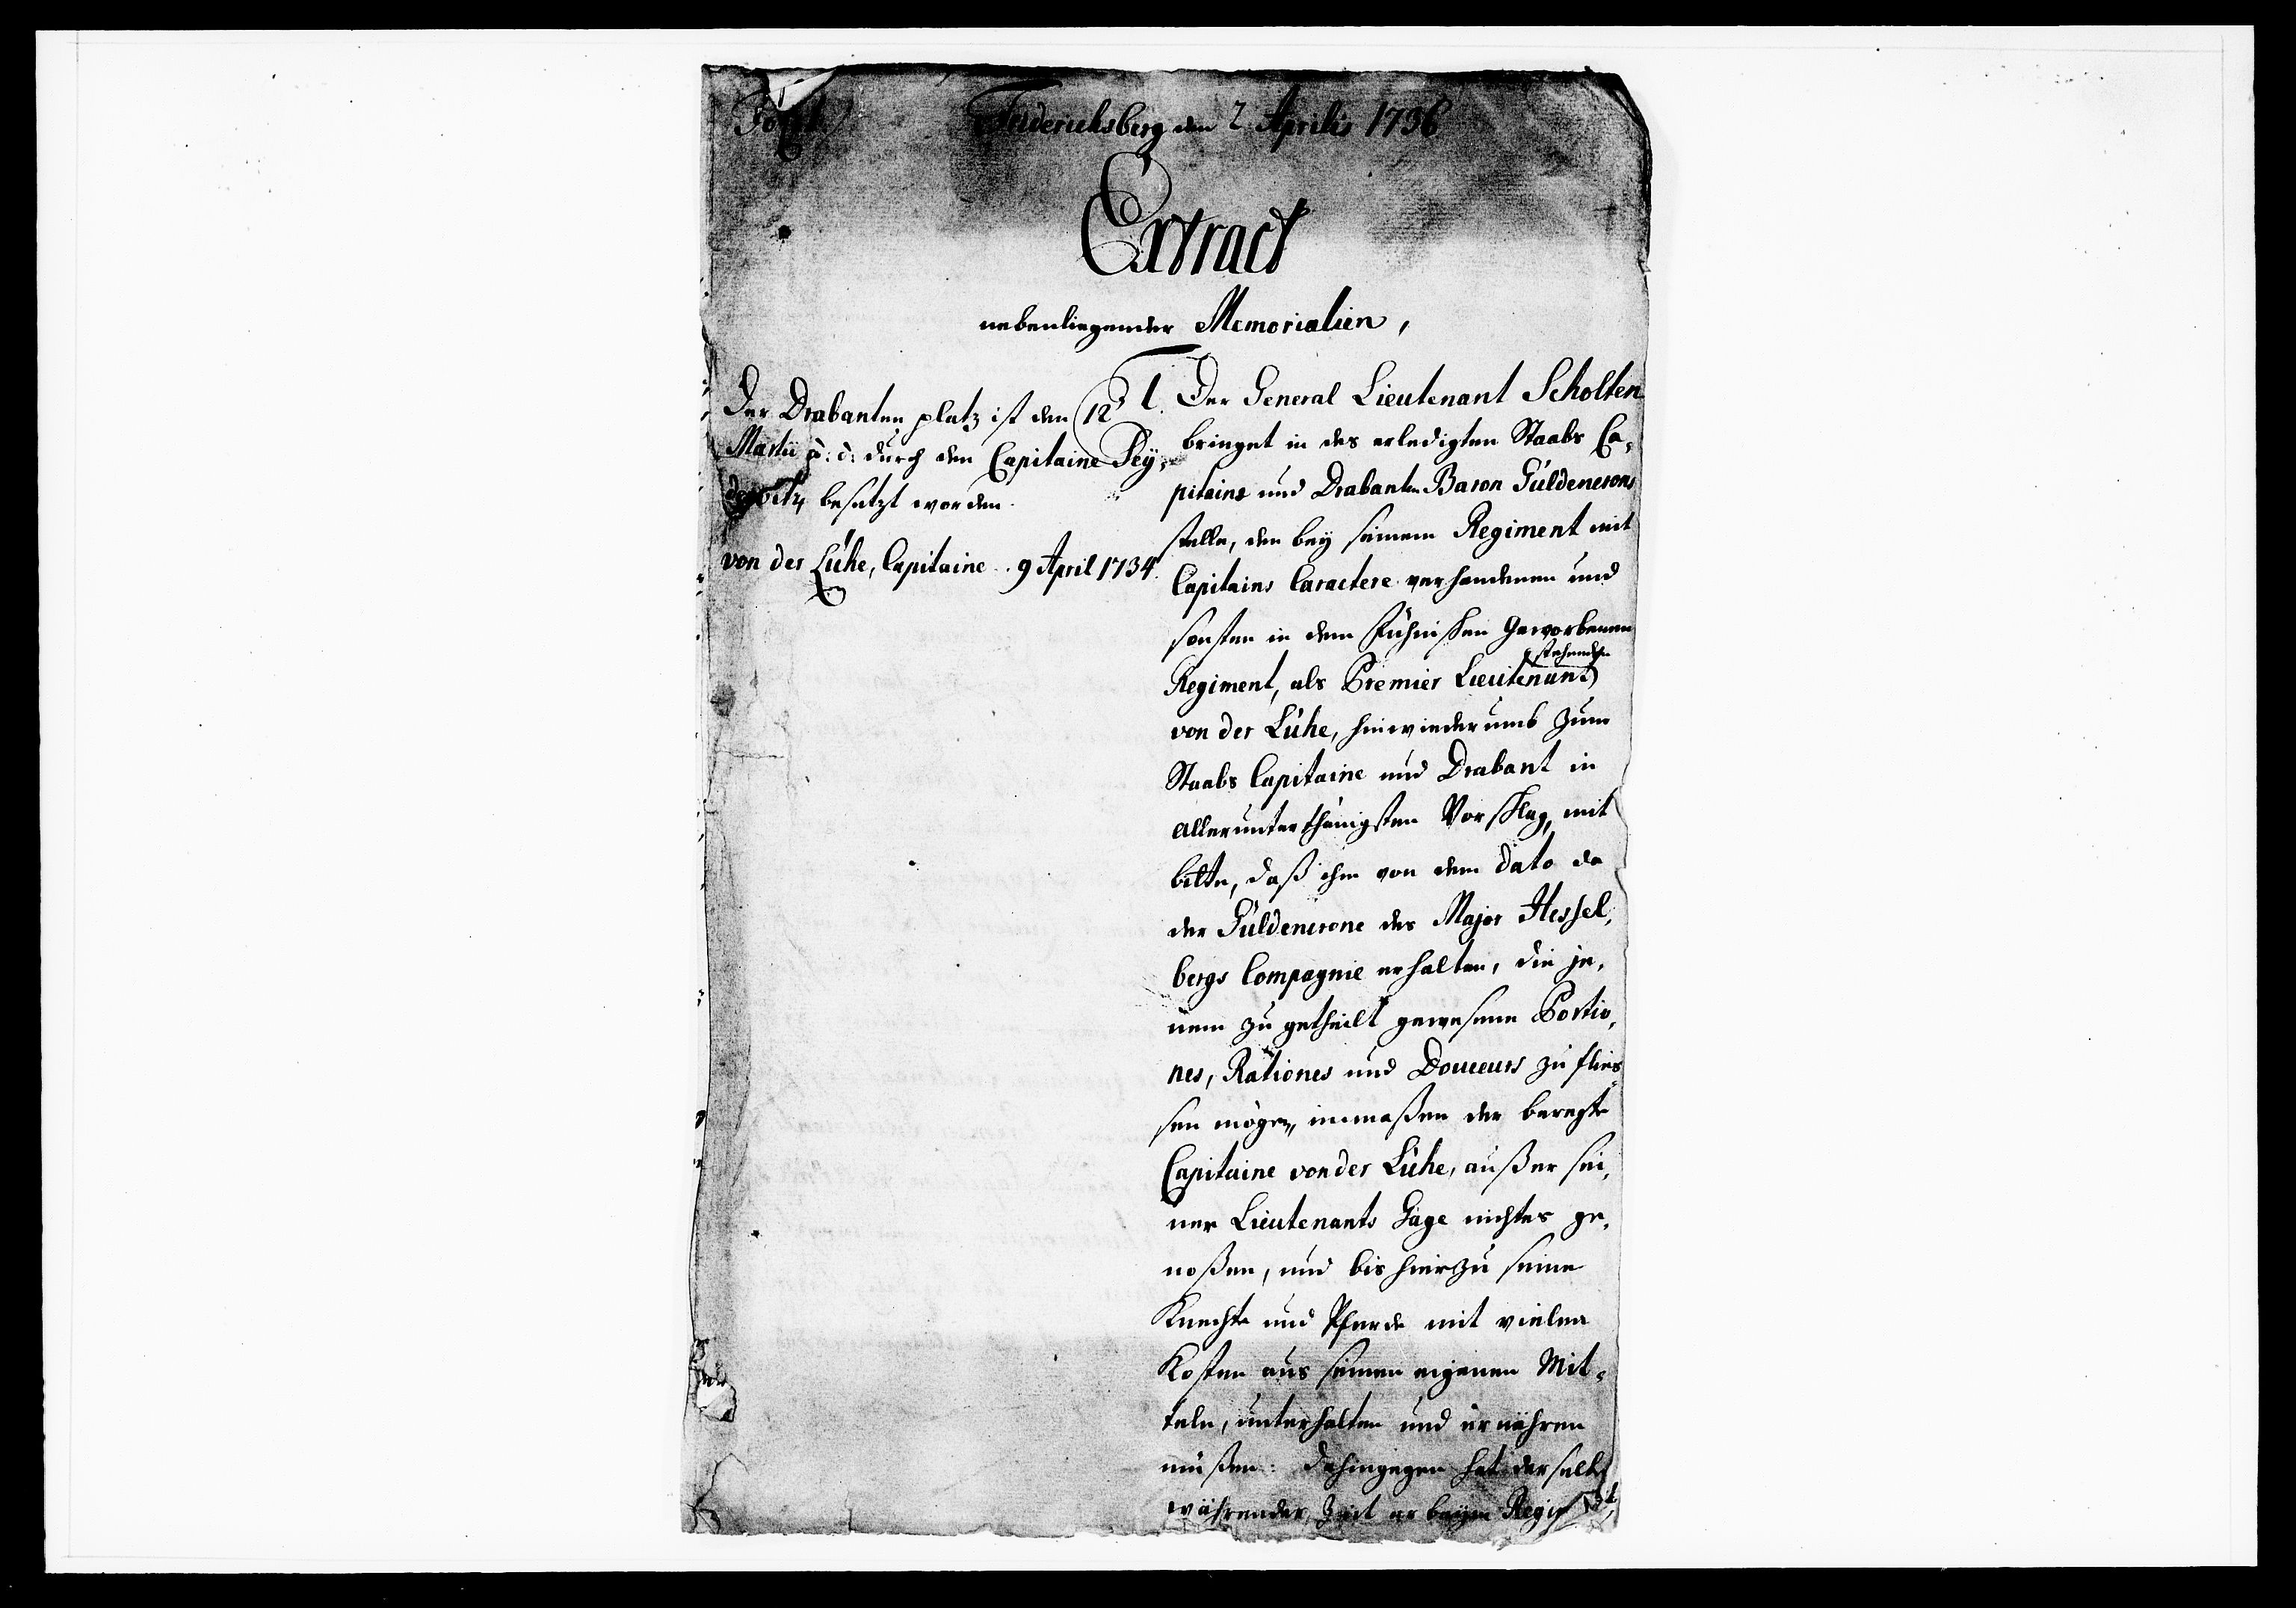 Friderichsberg den 2 Aprilis 1736
Extract
nebenliegender Memorialien,
Der Drabanten platz ist den 12
Martii a: c: durch den Capitaine Sey-
besetzt worden.
von der Lühe, Capitaine . 9 April 1734.
1. Der General Lieutenant Scholten
bringet in des erledigten Staabs Ca-
pitains und Drabanten Baron Güldencrons
stelle, den bey seinem Regiment mit
Capitains Caractere verhandenen und
sonsten in dem Fühnischen Geworbenen
stehenden
Regiment, als Premier Lieutenant
von der Lühe, hinwiederumb zum
Staabs Capitaine und Drabant in
allerunterthänigsten Vorschlag, mit
bitte, daß ihm von dem dato da
der Güldencrone des Major Hessel-
bergs Compagnie erhalten, die je-
nem zu getheilt gewesene Portio-
nes, Rationes und Douceurs zu flies-
sen mögen, immaßen der beregte
Capitaine von der Lühe, außer sei-
ner Lieutenants Gage nichtes ge-
noßen, und bis hierzu seine
Knechte und Pferde mit vielen
Kosten aus seinen eigenen Mit-
teln, unterhalten und ernähren
müßen: Dahingegen hat derselbe
währender Zeit er beym Regim